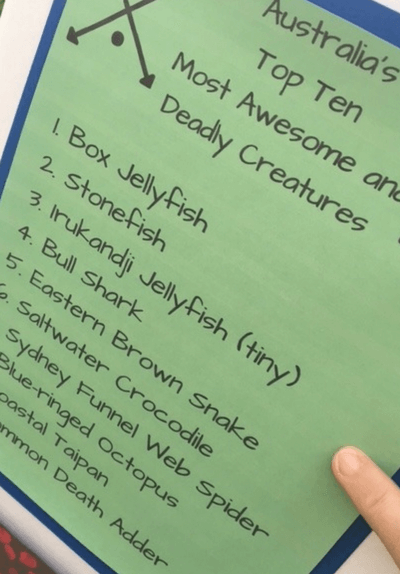 Australia's
Top Ten
Most Awesome and
Deadly Creatures
1. Box Jellyfish
2. Stonefish
3. Irukandji Jellyfish (tiny)
4. Bull Shark
5. Eastern Brown Snake
6. Saltwater Crocodile
Sydney Funnel Web Spider
Blue-ringed Octopus
oastal Taipan
mmon Death Adder